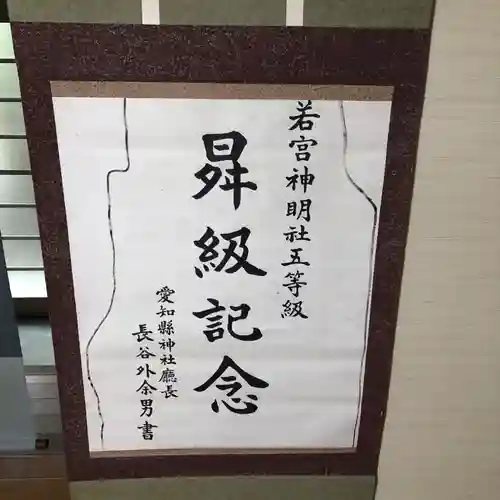 若宮神明社五等級
昇級記念
愛知縣神社廳長
長谷外余男書